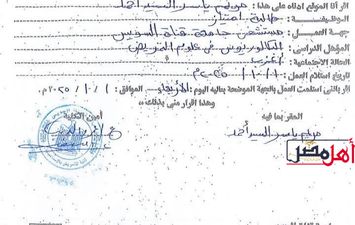 أقر أنا الموقع أدناه على هذا: مريم ياسر السيد أحمد
الوظيفة: طالبة امتياز
جهة العمل: مستشفى جامعة قناة السويس
المؤهل الدراسى: بكالوريوس فى علوم التمريض
الحالة الاجتماعية: أعزب
تاريخ استلام العمل: ١ / ١٠ / ٢٠٢٥م
أقر بأننى استلمت العمل بالجهة الموضحة بعاليه اليوم الأربعاء الموافق ١ / ١٠ / ٢٠٢٥م.
وهذا إقرار منى بذلك،،
المقر بما فيه
أمين الكلية
مريم ياسر السيد أحمد
أهل مصر